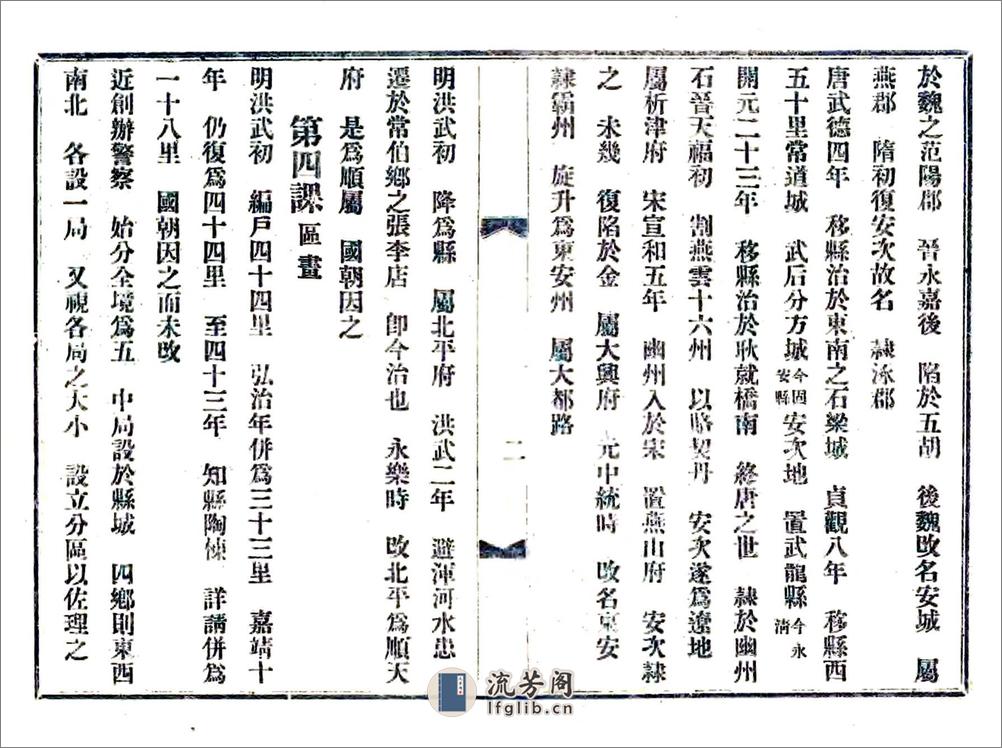 於魏之范陽郡　晉永嘉後　陷於五胡　後魏改名安城　屬
燕郡　隋初復安次故名　隸泳郡
唐武德四年　移縣治於東南之石梁城　貞觀八年　移縣西
五十里常道城　武后分方城今固安縣安次地　置武龍縣今永淸
開元二十三年　移縣治於耿就橋南　終唐之世　隸於幽州
石晉天福初　割燕雲十六州　以賂契丹　安次遂爲遼地
屬析津府　宋宣和五年　幽州入於宋　置燕山府　安次隸
之　未幾　復陷於金　屬大興府　元中統時　改名東安
隸霸州　旋升爲東安州　屬大都路
二
明洪武初　降爲縣　屬北平府　洪武二年　避渾河水患
遷於常伯鄉之張李店　卽今治也　永樂時　改北平爲順天
府　是爲順屬　國朝因之
第四課　區畫
明洪武初　編戶四十四里　弘治年併爲三十三里　嘉靖十
年　仍復爲四十四里　至四十三年　知縣陶悚　詳請併爲
一十八里　國朝因之而未改
近創辦警察　始分全境爲五　中局設於縣城　四鄉則東西
南北　各設一局　又視各局之大小　設立分區以佐理之
流芳阁
lfglib.cn